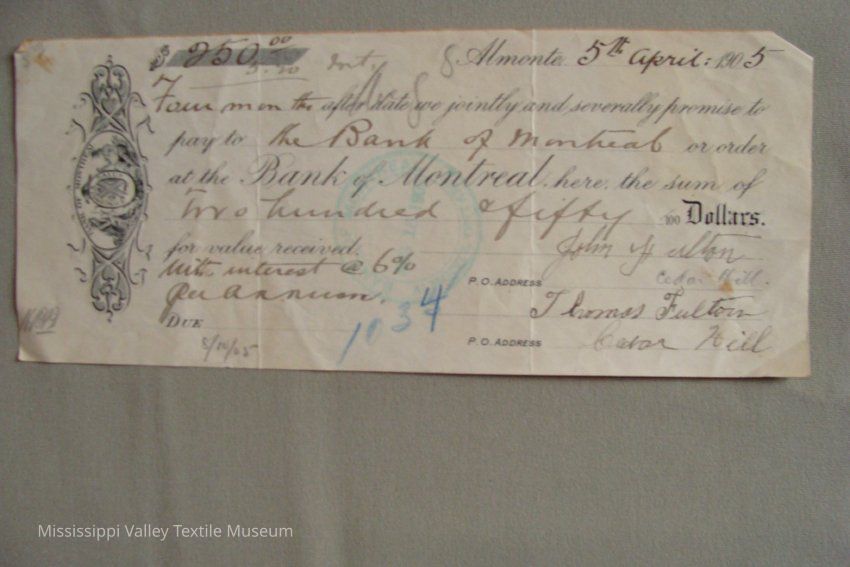 $ 250.00
5.20 Int.
Almonte, 5th April: 1905
Four months after date we jointly and severally promise to
pay to the Bank of Montreal or order
at the Bank of Montreal, here, the sum of
Two hundred & fifty /100 Dollars.
for value received.
With interest @ 6%
per annum.
John Fulton
P.O. ADDRESS Cedar Hill.
Thomas Fulton
DUE
P.O. ADDRESS Cedar Hill
8/10/05
1034
BANK OF MONTREAL
Mississippi Valley Textile Museum